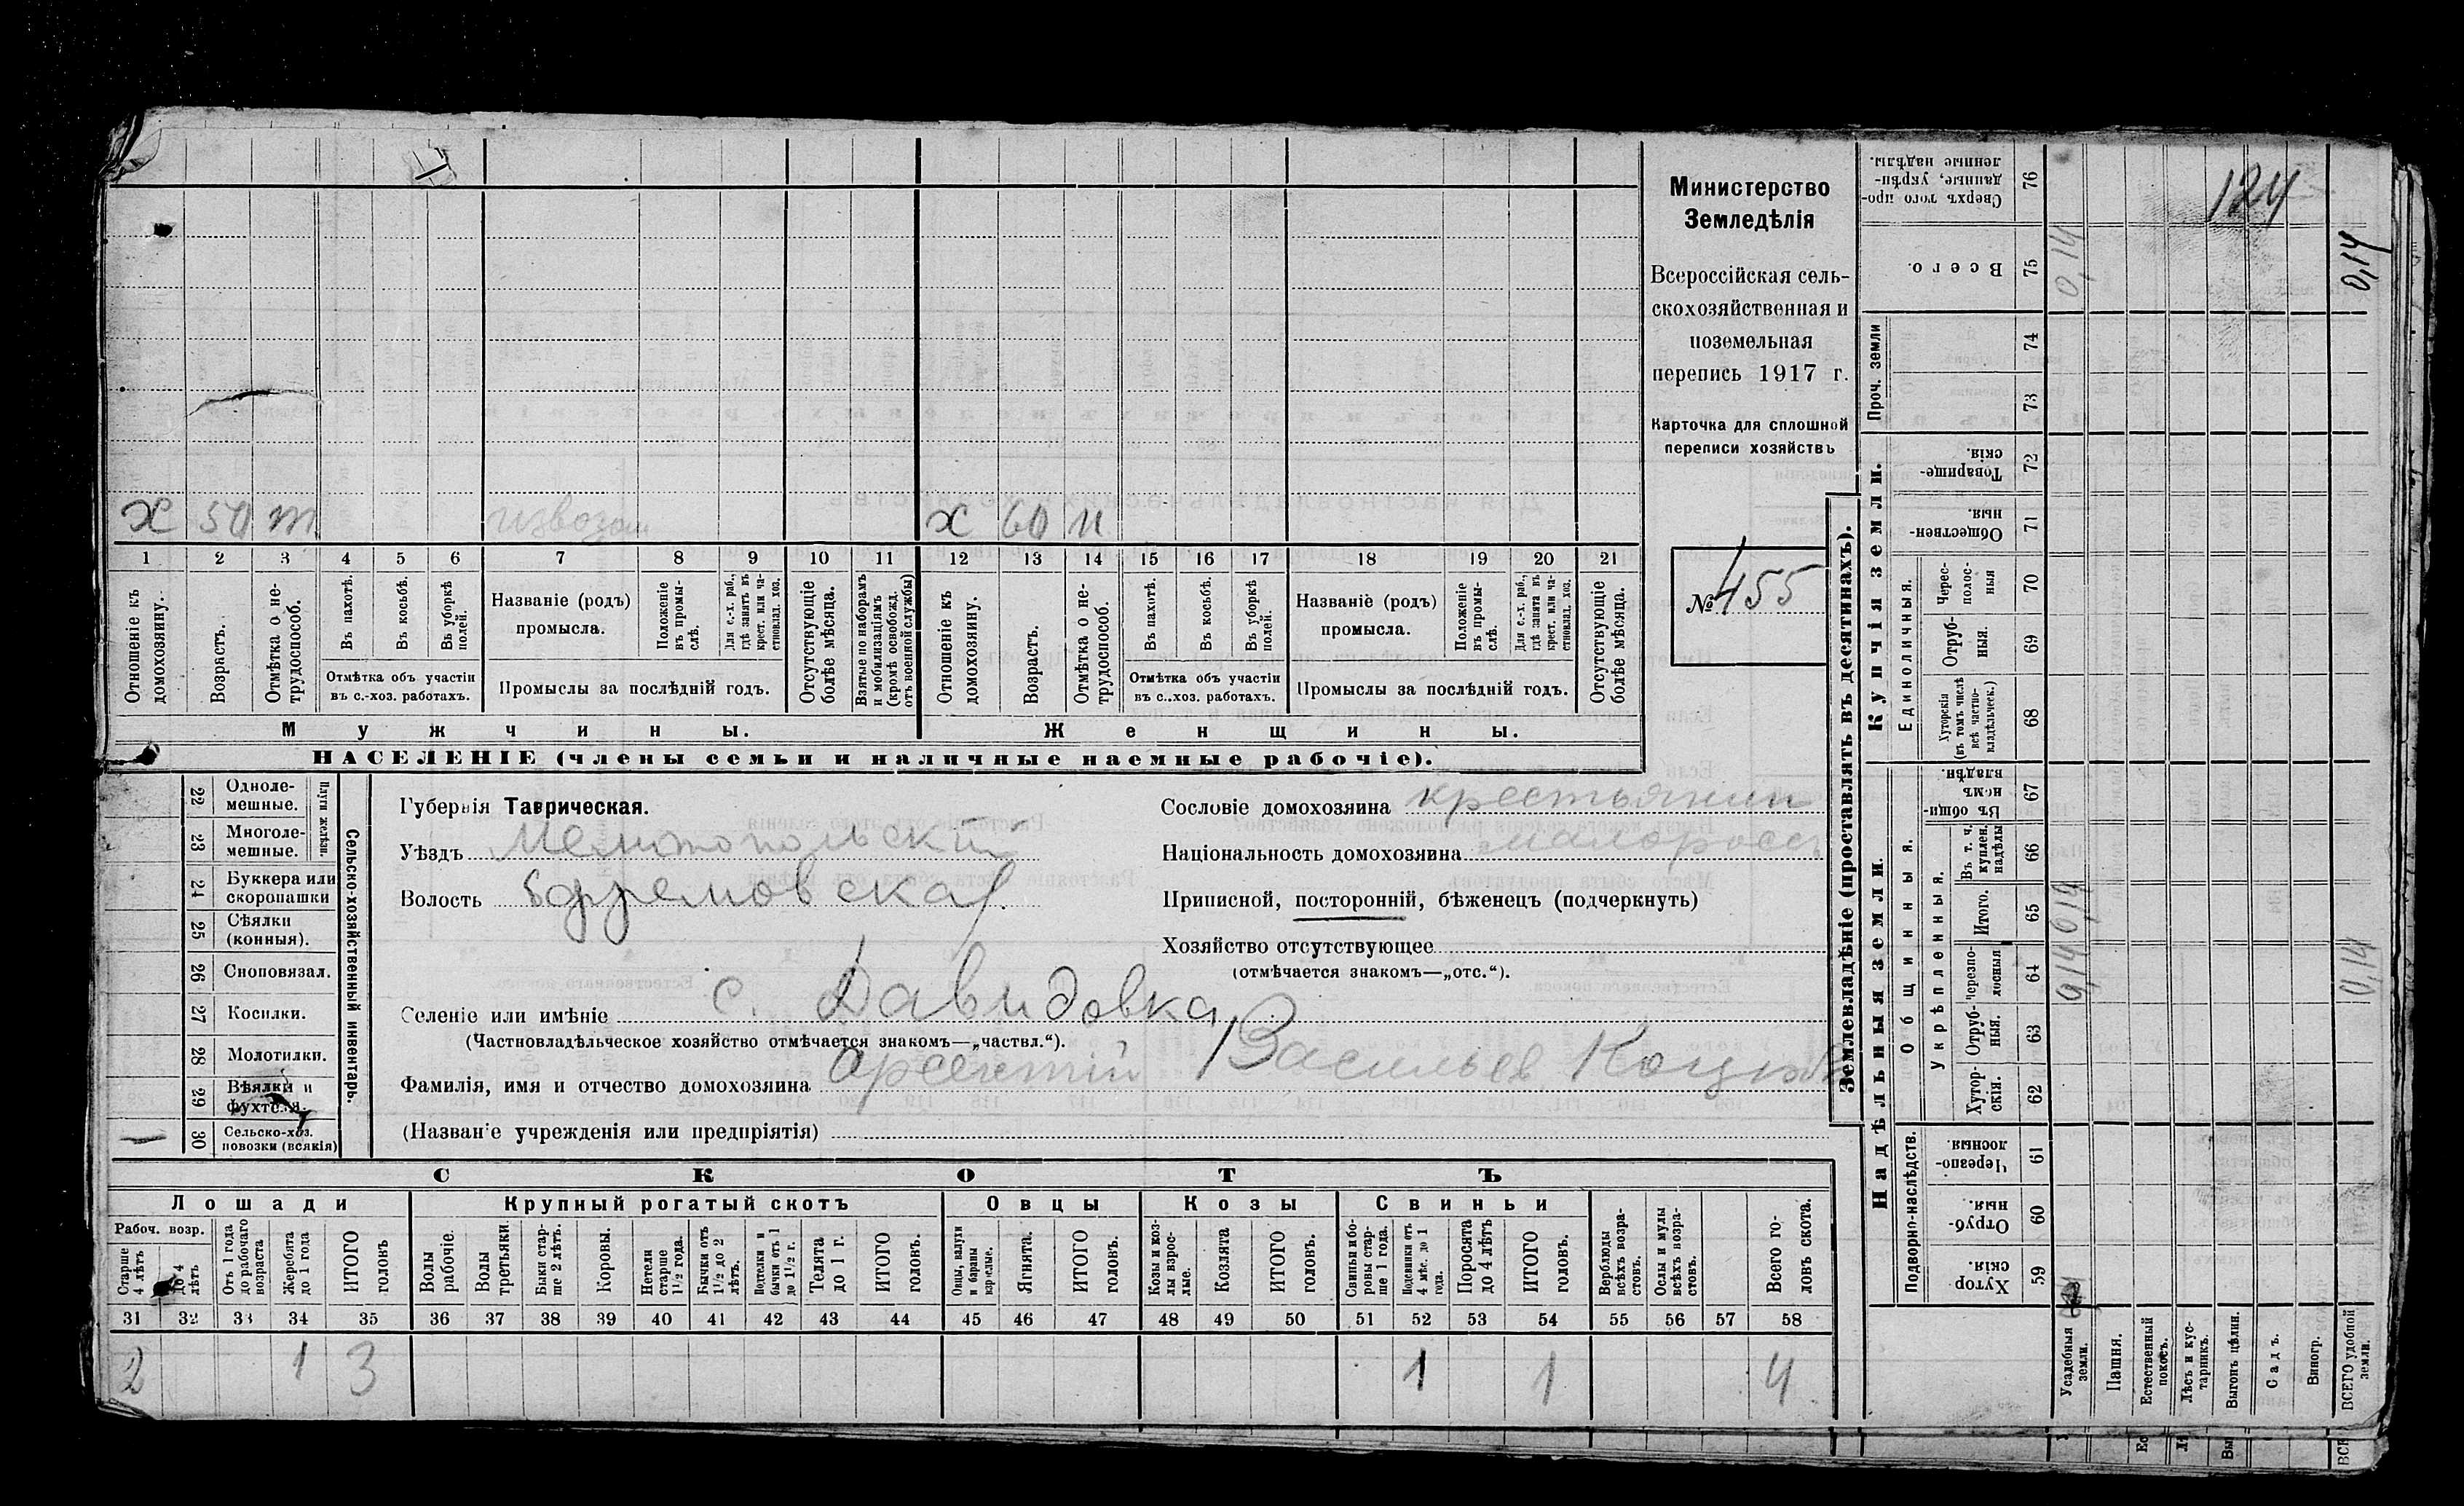 Министерство
Земледѣлія
Всероссійская сель-
скохозяйственная и
поземельная
перепись 1917 г.
Карточка для сплошной
переписи хозяйствъ
№ 455
х 50 т извозом х 60 н
1 2 3 4 5 6 7 8 9 10 11 12 13 14 15 16 17 18 19 20 21
Отношеніе къ домохозяину.
Возрастъ.
Отмѣтка о не-трудоспособ.
Въ пахотѣ.
Въ косьбѣ.
Въ уборкѣ полей.
Отмѣтка объ участіи
въ с.-хоз. работахъ.
Названіе (родъ)
промысла.
Положеніе въ промы-слѣ.
Для с.-х. раб., гдѣ занятъ въ крест. или ча-стновлад. хоз.
Промыслы за послѣдній годъ.
Отсутствующіе болѣе мѣсяца.
Взятые по наборамъ и мобилизаціямъ (кромѣ освобожд. отъ военной службы)
Отношеніе къ домохозяину.
Возрастъ.
Отмѣтка о не-трудоспособ.
Въ пахотѣ.
Въ косьбѣ.
Въ уборкѣ полей.
Отмѣтка объ участіи
въ с.-хоз. работахъ.
Названіе (родъ)
промысла.
Положеніе въ промы-слѣ.
Для с.-х. раб., гдѣ занята въ крест. или ча-стновлад. хоз.
Промыслы за послѣдній годъ.
Отсутствующіе болѣе мѣсяца.
Мужчины. Женщины.
НАСЕЛЕНІЕ (члены семьи и наличные наемные рабочіе).
22 Одноле-мешные.
23 Многоле-мешные.
Плуги желѣзн.
24 Буккера или скоропашки
25 Сѣялки (конныя).
26 Сноповязал.
27 Косилки.
28 Молотилки.
29 Вѣялки и фухтеля.
30 Сельско-хоз. повозки (всякія)
Сельско-хозяйственный инвентарь.
Губернія Таврическая.
Уѣздъ Мелитопольскій
Волость Ефремовская
Селеніе или имѣніе с. Давидовка
(Частновладѣльческое хозяйство отмѣчается знакомъ—„частвл.“).
Фамилія, имя и отчество домохозяина Арсентій Васильев
(Названіе учрежденія или предпріятія)
Сословіе домохозяина крестьянин
Національность домохозяина малоросс
Приписной, посторонній, бѣженецъ (подчеркнуть)
Хозяйство отсутствующее
(отмѣчается знакомъ—„отс.“).
СКОТЪ
Лошади Крупный рогатый скотъ Овцы Козы Свиньи
Рабоч. возр.
Старше 4 лѣтъ
До 4 лѣтъ
Отъ 1 года до рабочаго возраста
Жеребята до 1 года
ИТОГО головъ
Волы рабочіе.
Волы третьяки.
Быки стар-ше 2 лѣтъ.
Коровы.
Нетели старше 1½ года.
Бычки отъ 1½ до 2 лѣтъ.
Подтелки и бычки отъ 1 до 1½ г.
Телята до 1 г.
ИТОГО головъ.
Овцы, валухи и бараны взрослые.
Ягнята.
ИТОГО головъ.
Козы и коз-лы взрос-лые.
Козлята
ИТОГО головъ.
Свиньи и бо-ровы стар-ше 1 года.
Подсвинки отъ 4 мѣс. до 1 года.
Поросята до 4 мѣс.
ИТОГО головъ.
Верблюды всѣхъ возра-стовъ.
Ослы и мулы всѣхъ возра-стовъ.
Всего го-ловъ скота.
31 32 33 34 35 36 37 38 39 40 41 42 43 44 45 46 47 48 49 50 51 52 53 54 55 56 57 58
2 1 3 1 1 4
Землевладѣніе (проставлять въ десятинахъ).
Купчія земли.
Надѣльныя земли.
Сверхъ того про-данные, укрѣп-ленные надѣлы. 76
Всего. 75
Проч. земли 74 73
Товарище-скія. 72
Обществен-ныя. 71
Единоличныя.
Черес-полос-ныя 70
Отруб-ныя. 69
Хуторскія (въ томъ числѣ всѣ частно-владѣльческ.) 68
Общинныя.
Въ общи-номъ владѣн. 67
Укрѣпленныя.
Въ т. ч. куплен. надѣлы 66
Итого. 65
Черезпо-лосныя 64
Отруб-ныя. 63
Хутор-скія. 62
Подворно-наслѣдств.
Черезпо-лосныя 61
Отруб-ныя. 60
Хутор-скія 59
Усадебныя земли.
Пашня.
Естественный покосъ.
Лѣсъ и кус-тарникъ.
Выгонъ цѣлин.
Садъ.
Виногр.
ВСЕГО удобной земли.
124
0,14
0,14
0,14
0,14
0,14